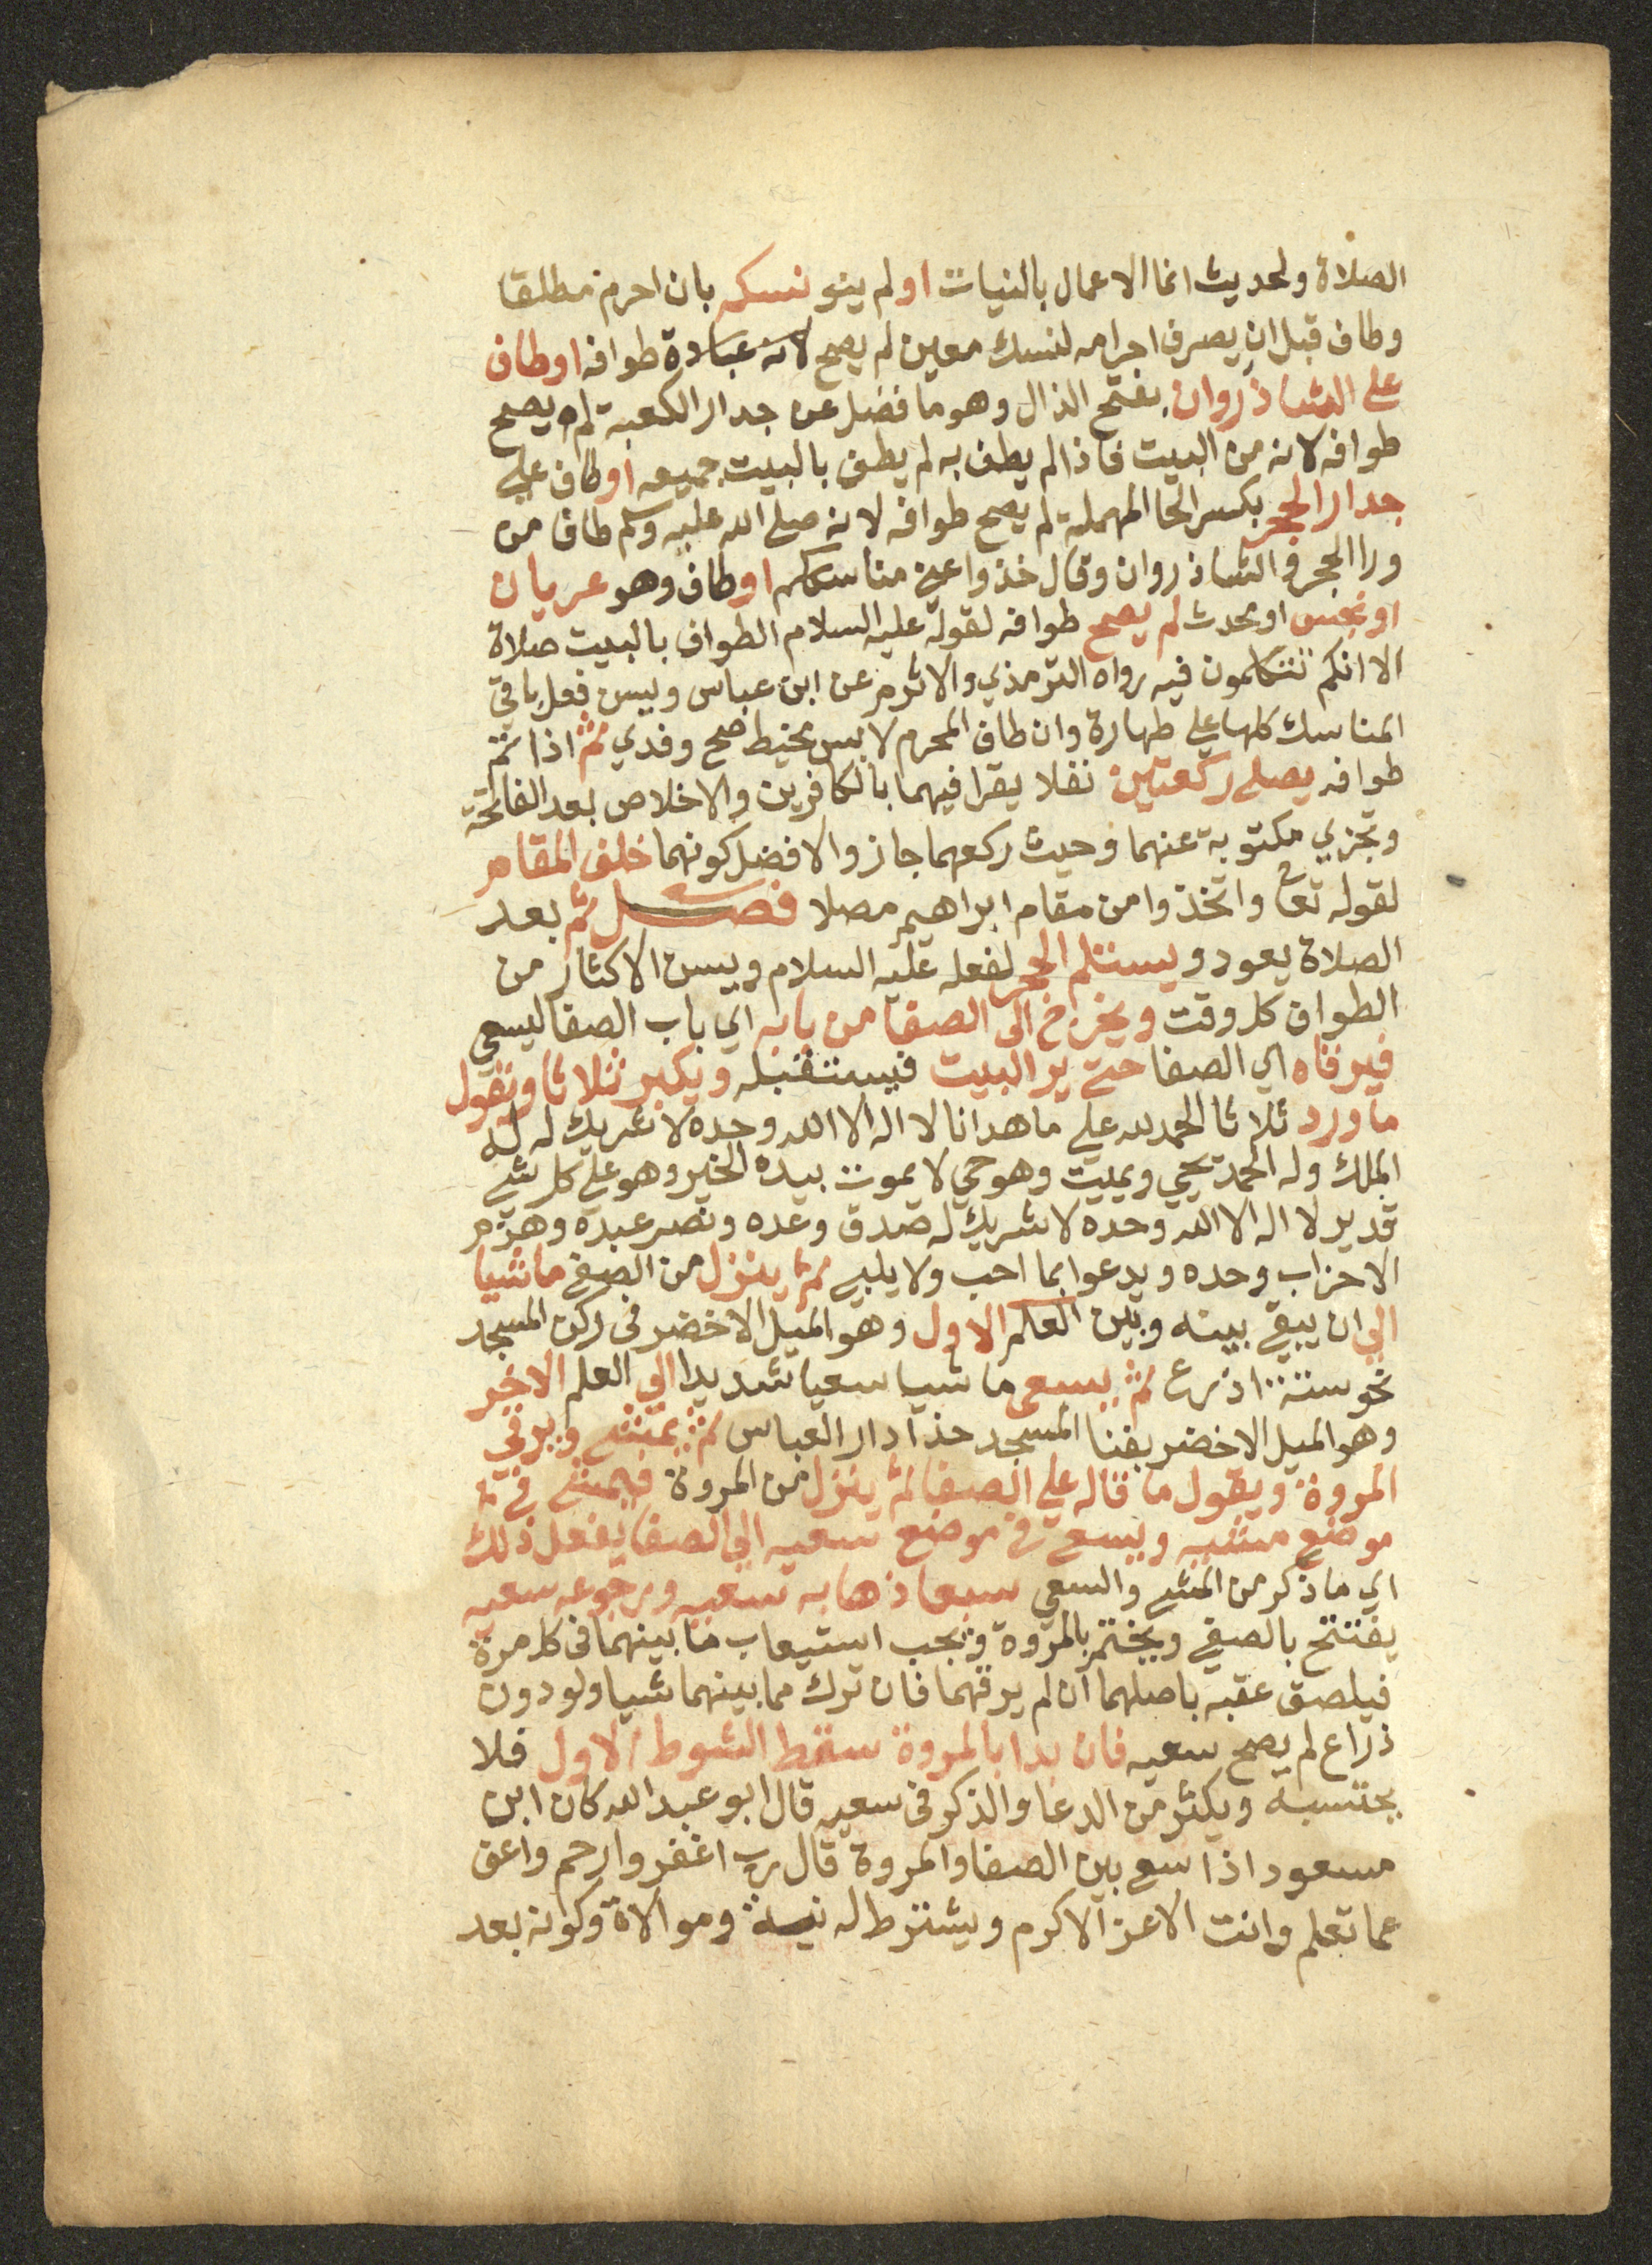 الصلاة ولحديث انما الاعمال بالنيات او لم ينو نسكه بان احرم مطلقا
وطاف قبل ان يصرف احرامه لنسك معين لم يصح لانه عبادة طوافه او طاف
على الشاذروان بفتح الذال وهو ما فضل عن جدار الكعبة لم يصح
طوافه لانه من البيت فاذا لم يطف به لم يطف بالبيت جميعه او طاف علي
جدار الحجر بكسر الحا المهملة لم يصح طوافه لانه صلى الله عليه وسلم طاف من
ورا الحجر والشاذروان وقال خذوا عني مناسككم او طاف وهو عريان
او نجس او محدث لم يصح طوافه لقوله عليه السلام الطواف بالبيت صلاة
الا انكم تتكلمون فيه رواه الترمذي والاثرم عن ابن عباس ويسن فعل باقي
المناسك كلها علي طهارة وان طاف المحرم لابس مخيط صح وفدي ثم اذا تم
طوافه يصلى ركعتين نفلا يقرا فيهما بالكافرين والاخلاص بعد الفاتحة
وتجزي مكتوبة عنهما وحيث ركعهما جاز والافضل كونهما خلف المقام
لقوله تعا واتخذوا من مقام ابراهيم مصلا فصل ثم بعد
الصلاة يعود ويستلم الحجر لفعله عليه السلام ويسن الاكثار من
الطواف كل وقت ويخرج الى الصفا من بابه اي باب الصفا ليسعي
فيرقاه اي الصفا حتى ير البيت فيستقبله ويكبر ثلاثا ويقول
ما ورد ثلاثا الحمد لله علي ما هدانا لا اله الا الله وحده لا شريك له له
الملك وله الحمد يحيي ويميت وهو حي لا يموت بيده الخير وهو علي كل شي
قدير لا اله الا الله وحده لا شريك له صدق وعده ونصر عبده وهزم
الاحزاب وحده ويدعوا بما احب ولا يلبي ثم ينزل من الصفي ماشيا
الي ان يبقي بينه وبين العلم الاول وهو الميل الاخضر في ركن المسجد
نحو ستة اذرع ثم يسعى ماشيا سعيا شديدا الي العلم الاخر
وهو الميل الاخضر بفنا المسجد حذا دار العباس ثم يمشي ويرقي
المروة ويقول ما قاله علي الصفا ثم ينزل من المروة فيمشي في
موضع مشيه ويسعي في موضع سعيه الي الصفا يفعل ذلك
اي ما ذكر من المشي والسعي سبعا ذهابه سعيه ورجوعه سعيه
يفتتح بالصفي ويختم بالمروة ويجب استيعاب ما بينهما في كل مرة
فيلصق عقبه باصلهما ان لم يرقهما فان ترك مما بينهما شيا ولو دون
ذراع لم يصح سعيه فان بدا بالمروة سقط الشوط الاول فلا
يحتسبه ويكثر من الدعا والذكر في سعيه قال ابو عبد الله كان ابن
مسعود اذا سعي بين الصفا والمروة قال رب اغفر وارحم واعف
عما تعلم وانت الاعز الاكرم ويشترط له نية وموالاة وكونه بعد